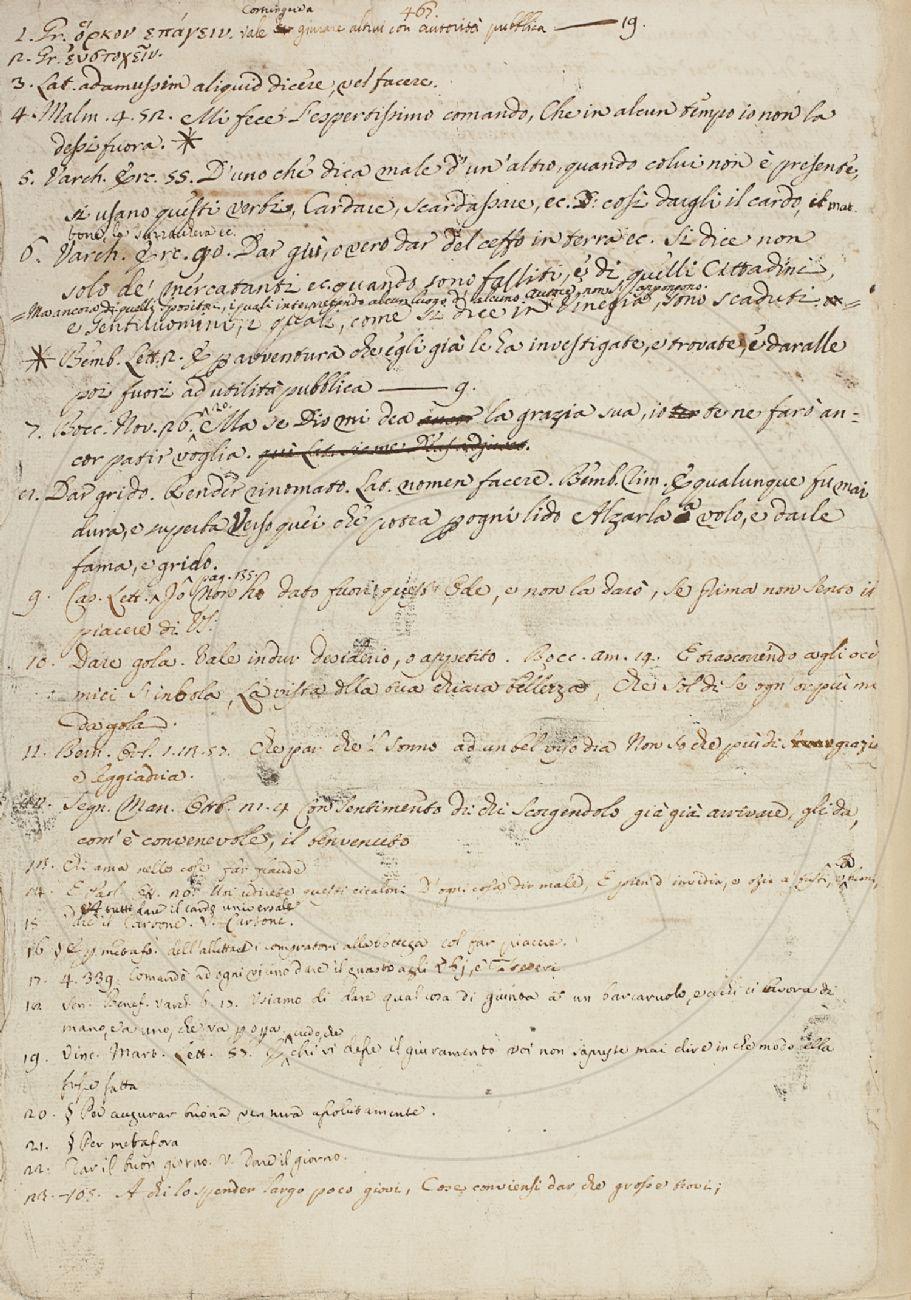 465.
1. Gr. ὅρκον ἐπάγειν. Vale giurare altrui con autorità pubblica — 19.
2. Gr. εὐστοχεῖν.
3. Lat. adamussim aliquid dicere, vel facere.
4. Malm. 4. 52. Mi fece l'espertissimo comando, Che in alcun tempo io non la
dessi fuora. *
5. Varch. Erc. 55. D'uno che dica male d'un'altro, quando colui non è presente,
si usano questi verbi, Cardare, scardassare, ec. E così dargli il cardo, il mat-
tone, ec.
6. Varch. Erc. 90. Dar giù, o vero dar del ceffo in terra ec. Si dice non
solo de' mercatanti ec. quando sono falliti, e di quelli Cittadini,
= Ma ancora di quelli spositori, i quali interpretando alcun luogo d'alcuno autore, non s'appongono.
e Gentiluomini, i quali, come si dice in Vinegia, sono scaduti =
* Bemb. Lett. 2. E per avventura che egli già le ha investigate, e trovate, e daralle
poi fuori ad utilità pubblica — 9.
7. Bocc. Nov. 26. 20. Ma se Dio mi dea la grazia sua, io te ne farò an-
cor patir voglia.
8. Dar grido. Render rinomato. Lat. nomen facere. Bemb. Rim. E qualunque fu mai
dura, e superba Verso quei che potea per ogni lido Alzarla a volo, e darle
fama, e grido.
9. Cap. Lett. pag. 135. Io non ho dato fuori questa Ode, e non la darò, se prima non sento il
piacere di V.S.
10. Dare gola. Vale indur desiderio, o appetito. Bocc. Am. 19. E trascorrendo agli occhi
miei s'imbola, La vista della tua chiara bellezza, Che sol di se ogn'or più mi
da gola.
11. Bern. Orl. 1. 12. 53. Che par che 'l sonno ad un bel viso dia Non so che più di grazia
e leggiadria.
12. Segn. Man. Ott. 21. 4 Con sentimento di chi scorgendolo già già arrivare, gli dà,
com'è convenevole, il benvenuto
13. Chi ama nelle cose far fraude
14. Voi udirete questi cicaloni D'ogni cosa dir male, E pien d'invidia,
E a tutti dare il cardo universale
15. dare il Carbone. V. Carbone.
16 § E per metafo. dell'allettare i compratori alla bottega col far piacere.
17. 4. 339. Comandò ad ogni vicino dare il guasto agli
18. Sen. Benef. Varch. 6. 15. Usiamo di dare qualcosa di giunta a un barcaruolo, e a chi ci lavora di
mano, e a uno, che va per opra.
19. Vinc. Mart. Lett. 53. credo, che chi vi desse il giuramento voi non sapreste mai dire in che modo ella
fusse fatta
20. § Per augurar buona ventura assolutamente.
21. § Per metafora
22. Dar il buon giorno. V. Dare il giorno.
23. -105. A chi lo spender largo poco giovi, Cose conviensi dar che grosse trovi;